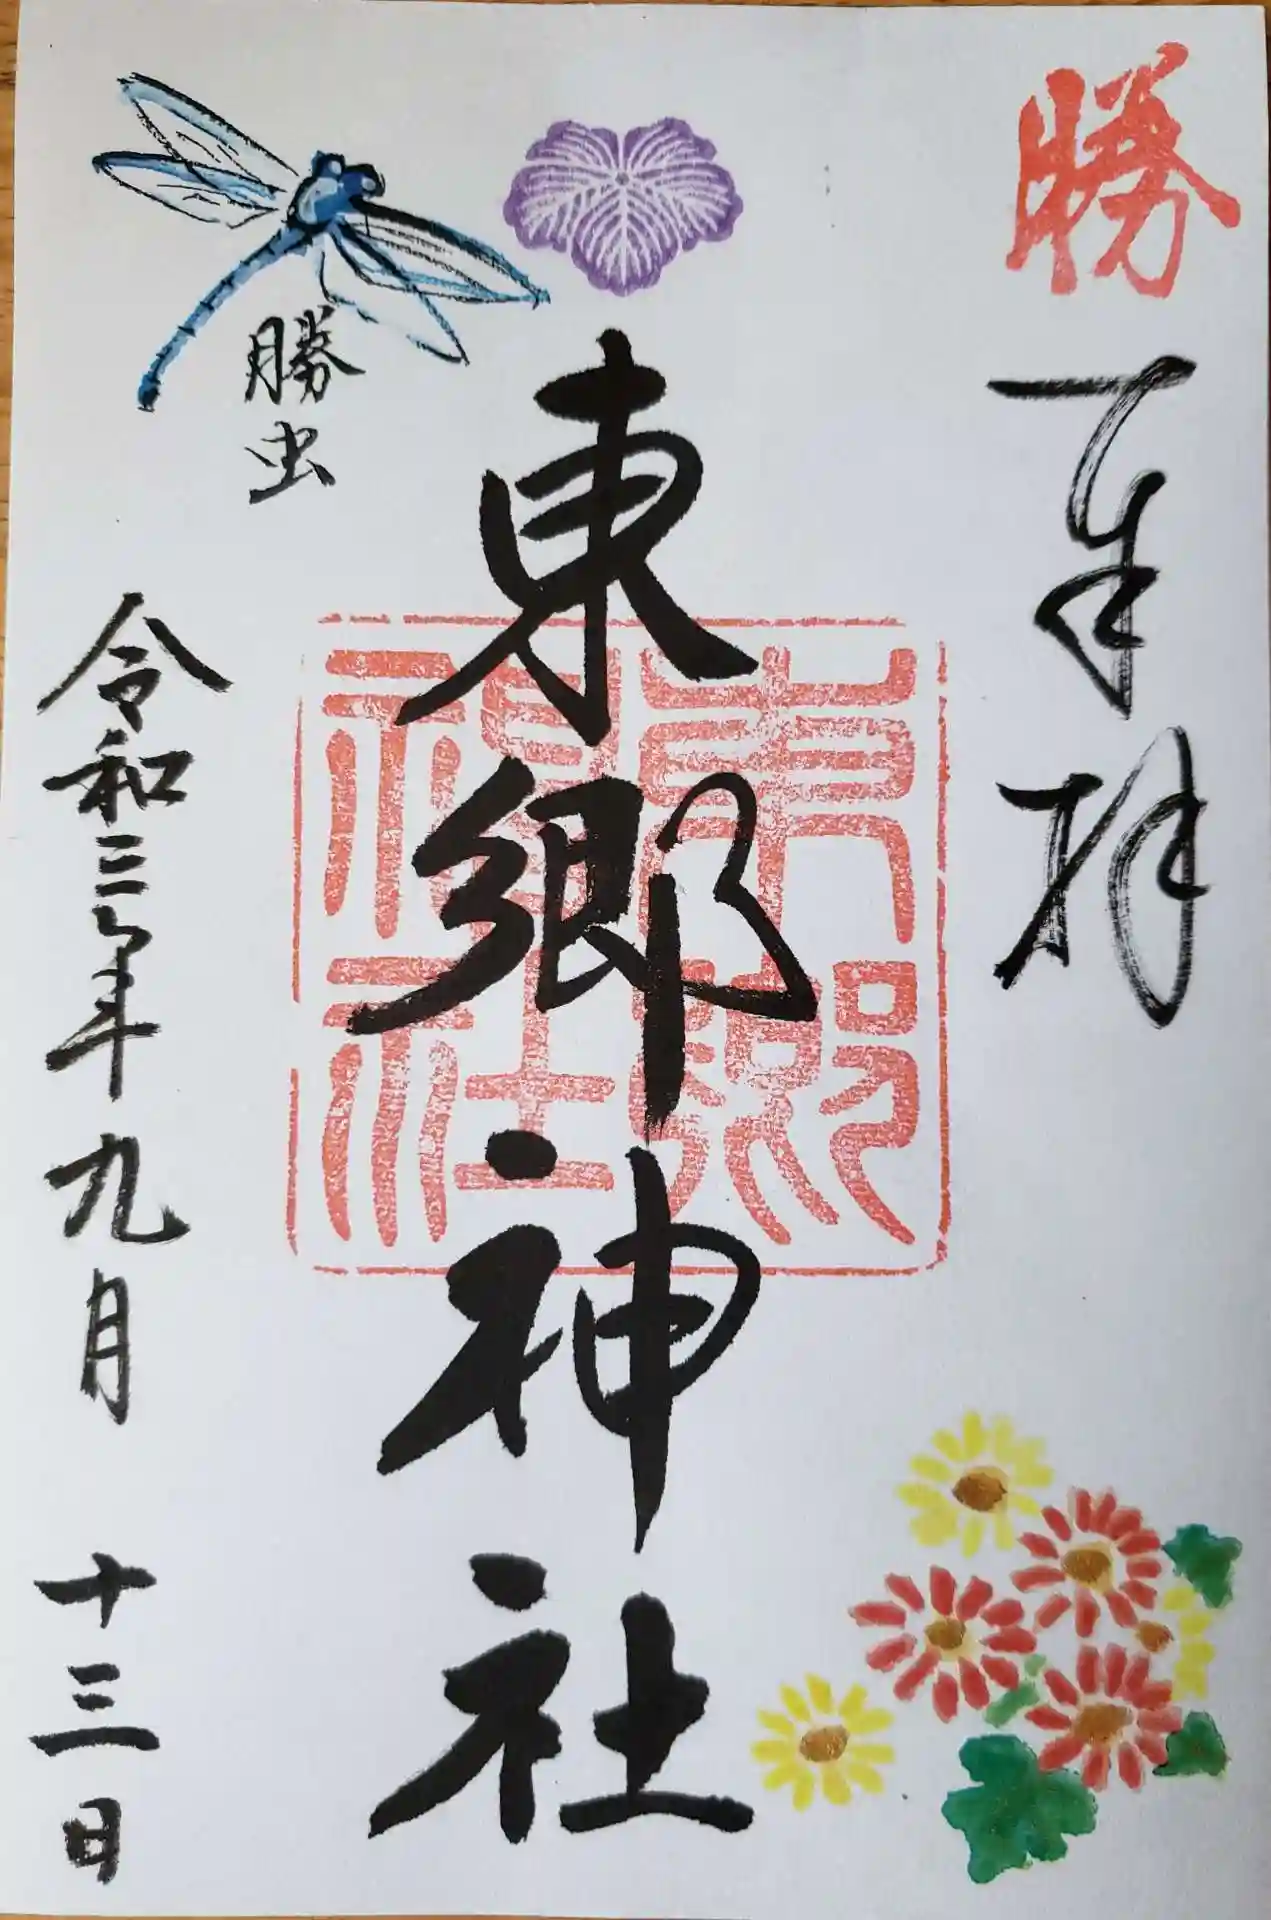 勝
奉拝
東郷神社
東郷
神社
勝虫
令和三年九月十三日